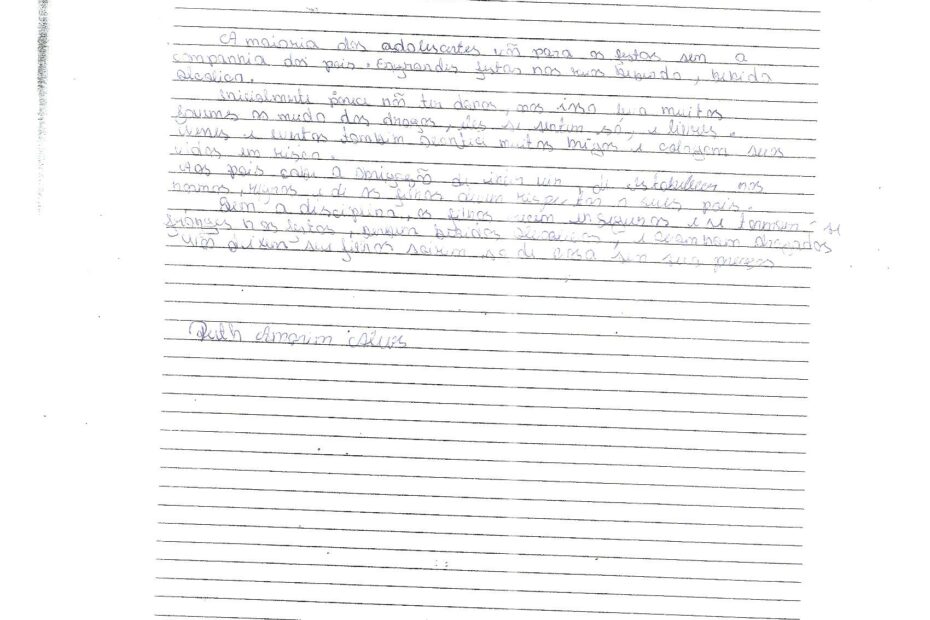 A maioria dos adolescentes vão para as festas sem a
companhia dos pais. Engrandes festas nas ruas bebendo, bebida
alcolica.
Inicialmente parece não ter danos, mas isso leva muitos
jovens ao mudo das drogas, eles se sentem só, e livres.
e eventos também muitos brigas e colocam suas
vidas em risco.
Aos pais cabe a obrigação de estabelecer nos
normas, regras e de os filhos devem respeitar a seus pais.
Sem a disciplina, os filhos inseguros e se tornam-se
nas festas, bebidas e acambam drogados
deixem seus filhos sairem só de casa sem sua
Ruth Amorim Alves